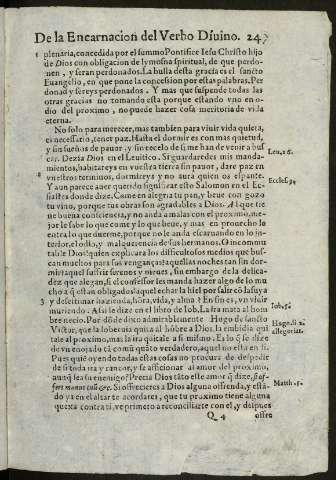 De la Encarnacion del Verbo Diuino. 247
plenaria, concedida por el summo Pontifice Iesu Christo hijo
de Dios con obligacion de lymosna spiritual, de que perdo-
nen, y seran perdonados. La bulla desta gracia es el sancto
Euangelio, en que pone la concession por estas palabras. Per
donad y sereys perdonados. Y mas que suspende todas las
otras gracias no tomando esta porque estando vno en o-
dio del proximo, no puede hazer cosa meritoria de vida
eterna.
No solo para merecer, mas tambien para viuir vida quieta,
es necessario, tener paz. Hasta el dormir es con mas quietud,
y sin sueños de pauor, y sin recelo de si me han de venir a bus
car. Dezia Dios en el Leuitico. Si guardaredes mis manda-
Leu. 26.
mientos, habitareys en vuestra tierra sin pauor, dare paz en
vuestros terminos, dormireys y no aura quien os espante.
Y aun parece auer querido significar esto Salomon en el Ec-
Eccles. 9.
siastes donde dize. Come en alegria tu pan, y beue con gozo
tu vino, porque tus obras son agradables a Dios. Al que tie
ne buena consciencia, y no anda a malas con el proximo, me-
jor le sabe lo que come y lo que beue, y mas en prouecho le
entra lo que duerme, porque no le anda escaruando en lo in-
terior, el odio, y malquerencia de sus hermanos. O incommu
table Dios! quien explicara los dificultosos medios que bus-
can muchos para sus venganças: aquellas noches tan sin dor-
mir: aquel suffrir serenos y nieues, sin embargo de la delica-
dez que alegan, si el confessor les manda hazer algo de lo mu
cho a que estan obligados: aquel echar la hiel por salir con la suya
y desatinar hazienda, hora, vida, y alma? En fin es, vn viuir
muriendo. Assi se dize en el libro de Iob. La ira mata al hom
Iob. 5.
bre necio. Por donde dixo admirablemente Hugo de sancto
Hugo
Victor, que la soberuia quita al hombre a Dios, la embidia qui
allegorias.
tale al proximo, mas la ira quitale a si mismo. Es lo que se dize
de vn enojado
Pues quie oyendo todas estas cosas no procura de despedir
de si toda ira y rancor, y se afficionar al amor del proximo,
aunque sea su enemigo? Precia Dios tanto este amor que dize, si of-
Matth. 5.
fers munus tuum &c. Si offrecieres a Dios alguna offrenda, y estan-
do ya en el altar te acordares, que tu proximo tiene alguna
quexa contra ti, ve primero a reconciliarte con el, y despues
Q 4 offre